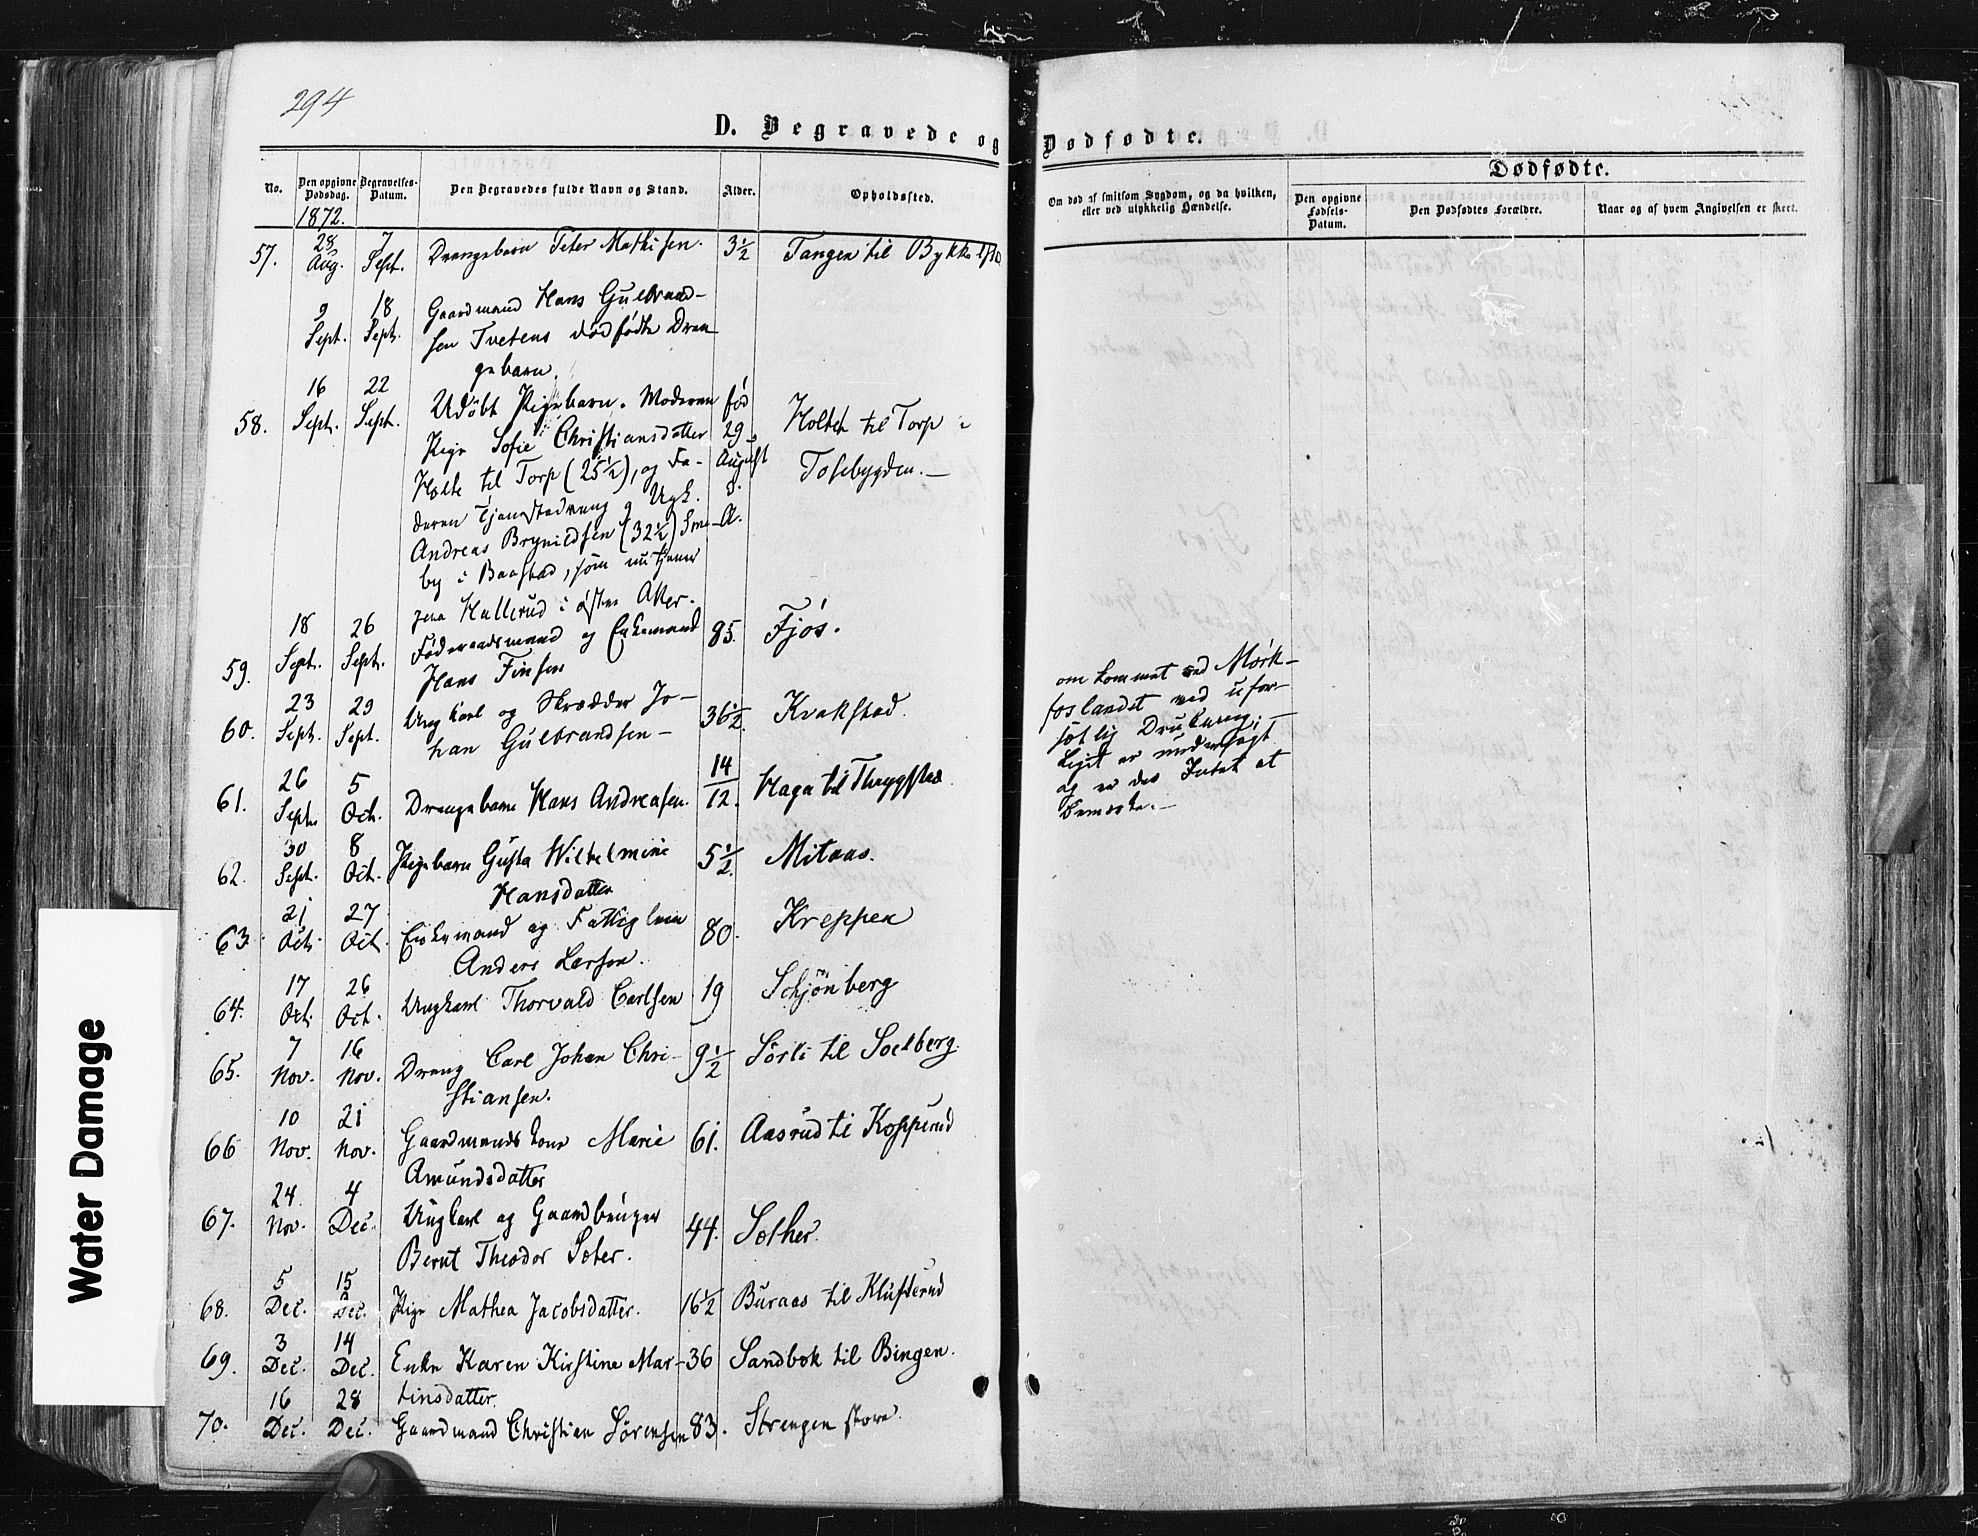 294
D. Begravede og Dødfødte.
Dødfødte.
No.
Den opgivne Dødsdag.
Begravelses-Datum.
Den Begravedes fulde Navn og Stand.
Alder.
Opholdssted.
Om død af smitsom Sygdom, og da hvilken, eller ved ulykkelig Hændelse.
Den opgivne Fødsels-Datum.
Den Dødfødtes Forældre.
Naar og af hvem Angivelsen er skeet.
1872.
57. 28 Aug. 7 Sept. Drengebarn Peter Mathisen. 3½ Tangen til
9 Sept. 18 Sept. Gaardmand Hans Gulbrand-
sen Tvetens dødfødte Dren-
gebarn.
58. 16 Sept. 22 Sept. Udöbt Pigebarn. Moderen fød Holtet til Torp i
Pige Sofie Christiansdatter 29 Tosebygden.
Holte til Torp (25½), og Fa- August
deren Tjenestedreng og Ungk.
Andreas Brynildsen (32½) Sme- A.
by i Baastad, som nu tjener
paa Kallerud i østre Aker.
59. 18 Sept. 26 Sept. Föderaadsmand og Enkemand 85. Fjös.
Hans Finsen
60. 23 Sept. 29 Sept. Ungkarl og Skrædder Jo- 36½ Kvakstad.
han Gulbrandsen
omkommet ved Mörk-
foslandet ved ufor-
sætlig Drukning;
Liget er undersøgt
og er der Intet at
bemærke.
61. 26 Sept. 5 Oct. Drengebarn Hans Andreasen. 14/12. Haga til
62. 30 Sept. 8 Oct. Pigebarn Gusta Wilhelmine 5½ Mitaas.
Hansdatter
63. 21 Oct. 27 Oct. Enkemand og Fattiglem 80. Kreppen
Anders Larsen.
64. 17 Oct. 26 Oct. Ungkarl Thorvald Carlsen 19 Schjönberg
65. 7 Nov. 16 Nov. Dreng Carl Johan Chri- 9½ Sörli til Soelberg.
stiansen.
66 10 Nov. 21 Nov. Gaardmandskone Marie 61. Aasrud til Kopperud
Amundsdatter
67. 24. Nov. 4 Dec. Ungkarl og Gaardbruger 44. Sother.
Bernt Theodor Soter.
68. 5 Dec. 15 Dec. Pige Mathea Jacobsdatter. 16½ Buraas til Klufterud
69. 3 Dec. 14 Dec. Enke Karen Kirstine Mar- 36 Sandbæk til Bingen.
tinsdatter
70. 16 Dec. 28 Dec. Gaardmand Christian Sörensen 83. Strengen store.
Water Damage